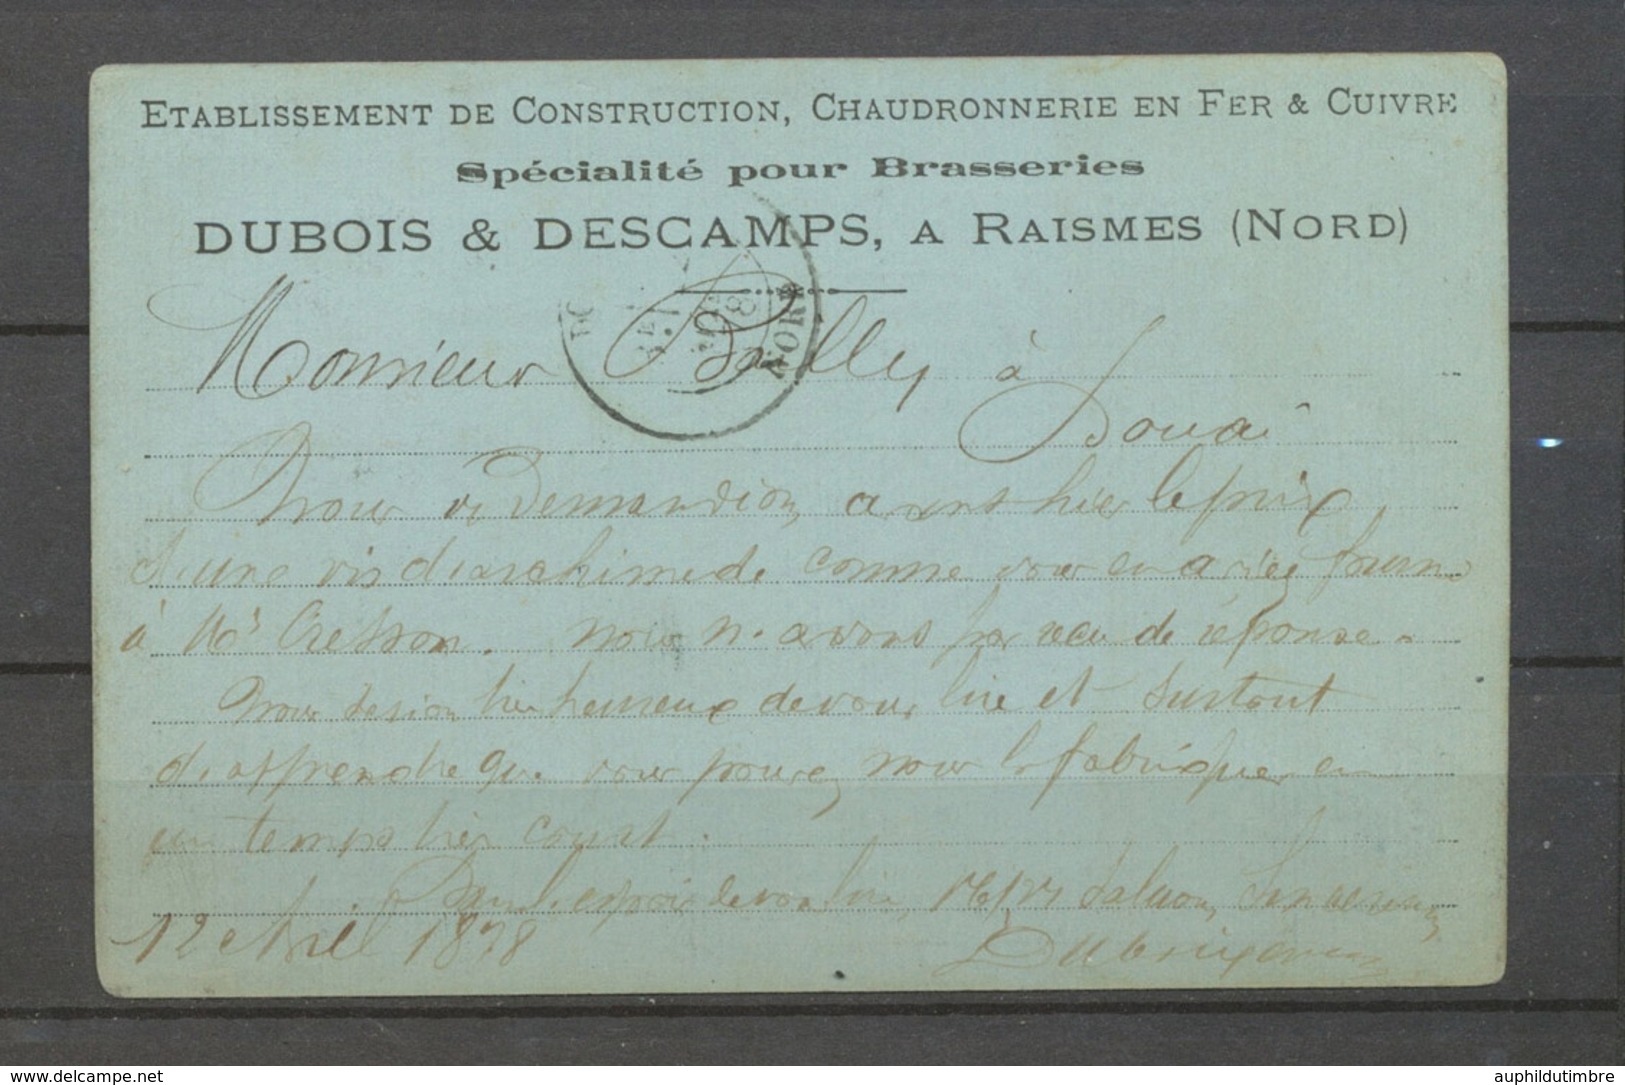 ETABLISSEMENT DE CONSTRUCTION, CHAUDRONNERIE EN FER & CUIVRE
Spécialité pour Brasseries
DUBOIS & DESCAMPS, A RAISMES (NORD)
NORD
Monsieur Bailly à
Douai
Nous vs demandion avant hier le prix
d'une vis d'archimede comme vous en aviez fourni
à Mr Cresson. nous n'avons pas recu de réponse.
Nous serion bien heureux de vous lire et surtout
d'apprendre que vous pouvez nous la fabriquer en
un temps bien court.
Dans l'espoir de vous lire,
12 Avril 1878
www.delcampe.net
auphildutimbre